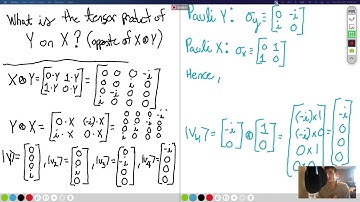 What is the tensor product of
Y on X? (opposite of X⊗Y)
X⊗Y = [0·Y 1·Y; 1·Y 0·Y] = [0 0 0 -i; 0 0 i 0; 0 -i 0 0; i 0 0 0]
Y⊗X = [0·X (-i)·X; i·X 0·X] = [0 0 0 -i; 0 0 -i 0; 0 i 0 0; i 0 0 0]
|V₁⟩ = [0; 0; 0; i], |V₂⟩ = [0; 0; i; 0], |V₃⟩ = [0; -i; 0; 0], |V₄⟩ = [-i; 0; 0; 0]
Pauli Y: σy = [0 -i; i 0]
Pauli X: σx = [0 1; 1 0]
Hence,
|V₄⟩ = [-i; 0] ⊗ [1; 0] = [(-i)×1; (-i)×0; 0×1; 0×0] = [-i; 0; 0; 0]